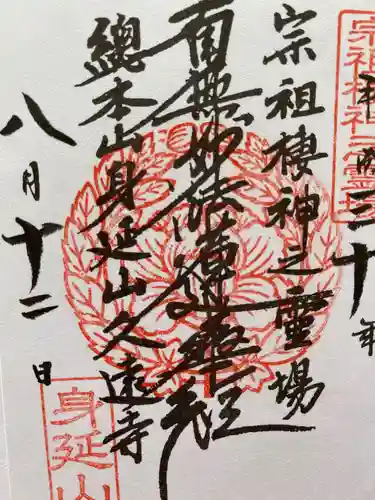 平成三十年
宗祖棲神之霊場
宗祖棲神之靈場
南無妙法蓮華経
總本山身延山久遠寺
八月十二日
身延山